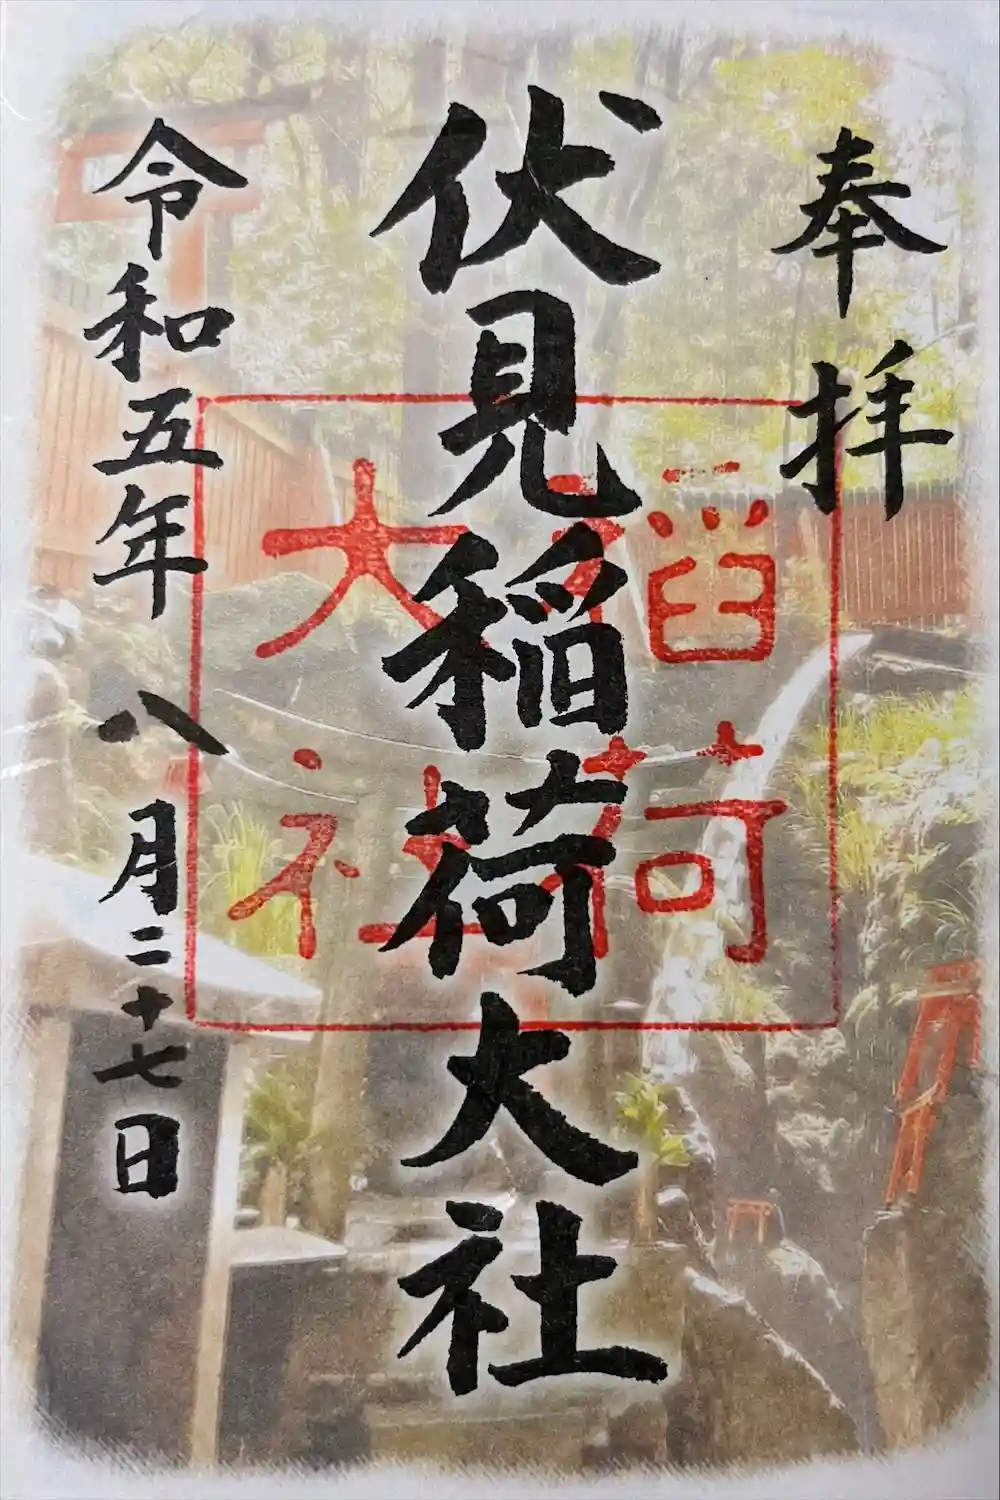 奉拝
伏見稲荷大社
令和五年八月二十七日
稲荷
大社